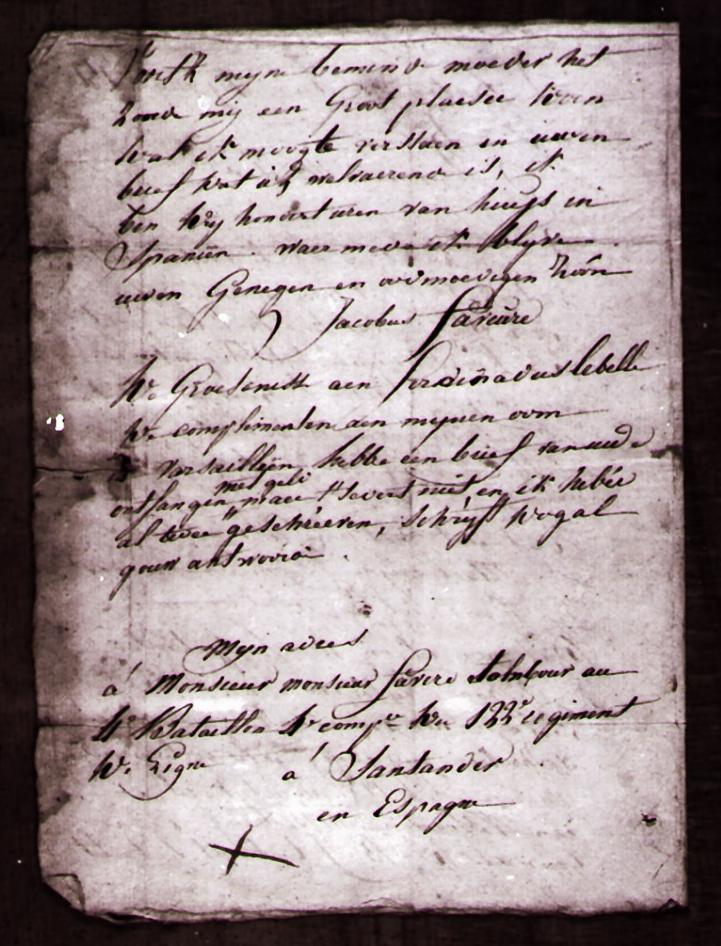 mijne beminde moeder het
zoud mij een Groot plaesier doen
dat ik moogte verstaen in uwen
brief dat al welvaerend is, ik
ben dry hondert uren van huijs in
Spanien waer mede ik blyve
uwen Genegen en oodmoedigen zoon
Jacobus Favere
de Groetenisse aen ferdinandus lebelle
de complimenten aen mynen oom
Varsaillien, hebbe een brief van ulde
ontfangen met geld, maer niet, en ik hebbe
al twee geschreeven, schryft de gal
gouw antwoord
Mijn adres
á Monsieur monsieur favere tambour au
4e Bataillon 4e compe du 122e regiment
de Ligne á Santander
en Espagne